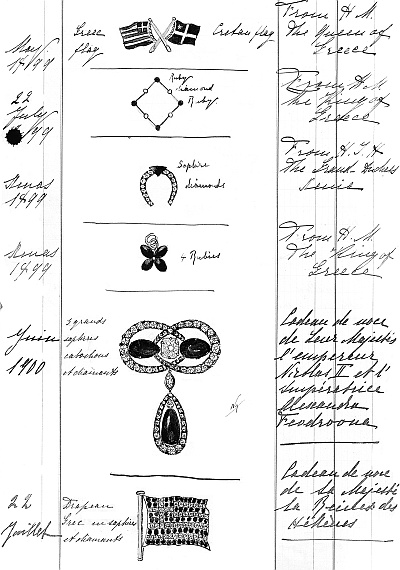 May
1899
Grec
flag
Cretan flag
From H. M.
The Queen of
Greece
22
July
99
Ruby
diamond
Ruby
From H. M.
the King of
Greece
Xmas
1899
Saphire
diamonds
From H. I. H
The Grand Duchess
Xenie
Xmas
1899
4 Rubies
From H. M.
The King of
Greece
Juin
1900
3 grands
saphires
cabochons
et diamants
Cadeau de noce
de Leur Majestés
l'empereur
Nicolas II et l'
Impératrice
Alexandra
Feodrovna
22
Juillet
Drapeau
Grec en saphires
et diamants
Cadeau de noce
de Sa Majesté
la Reine des
Hélènes